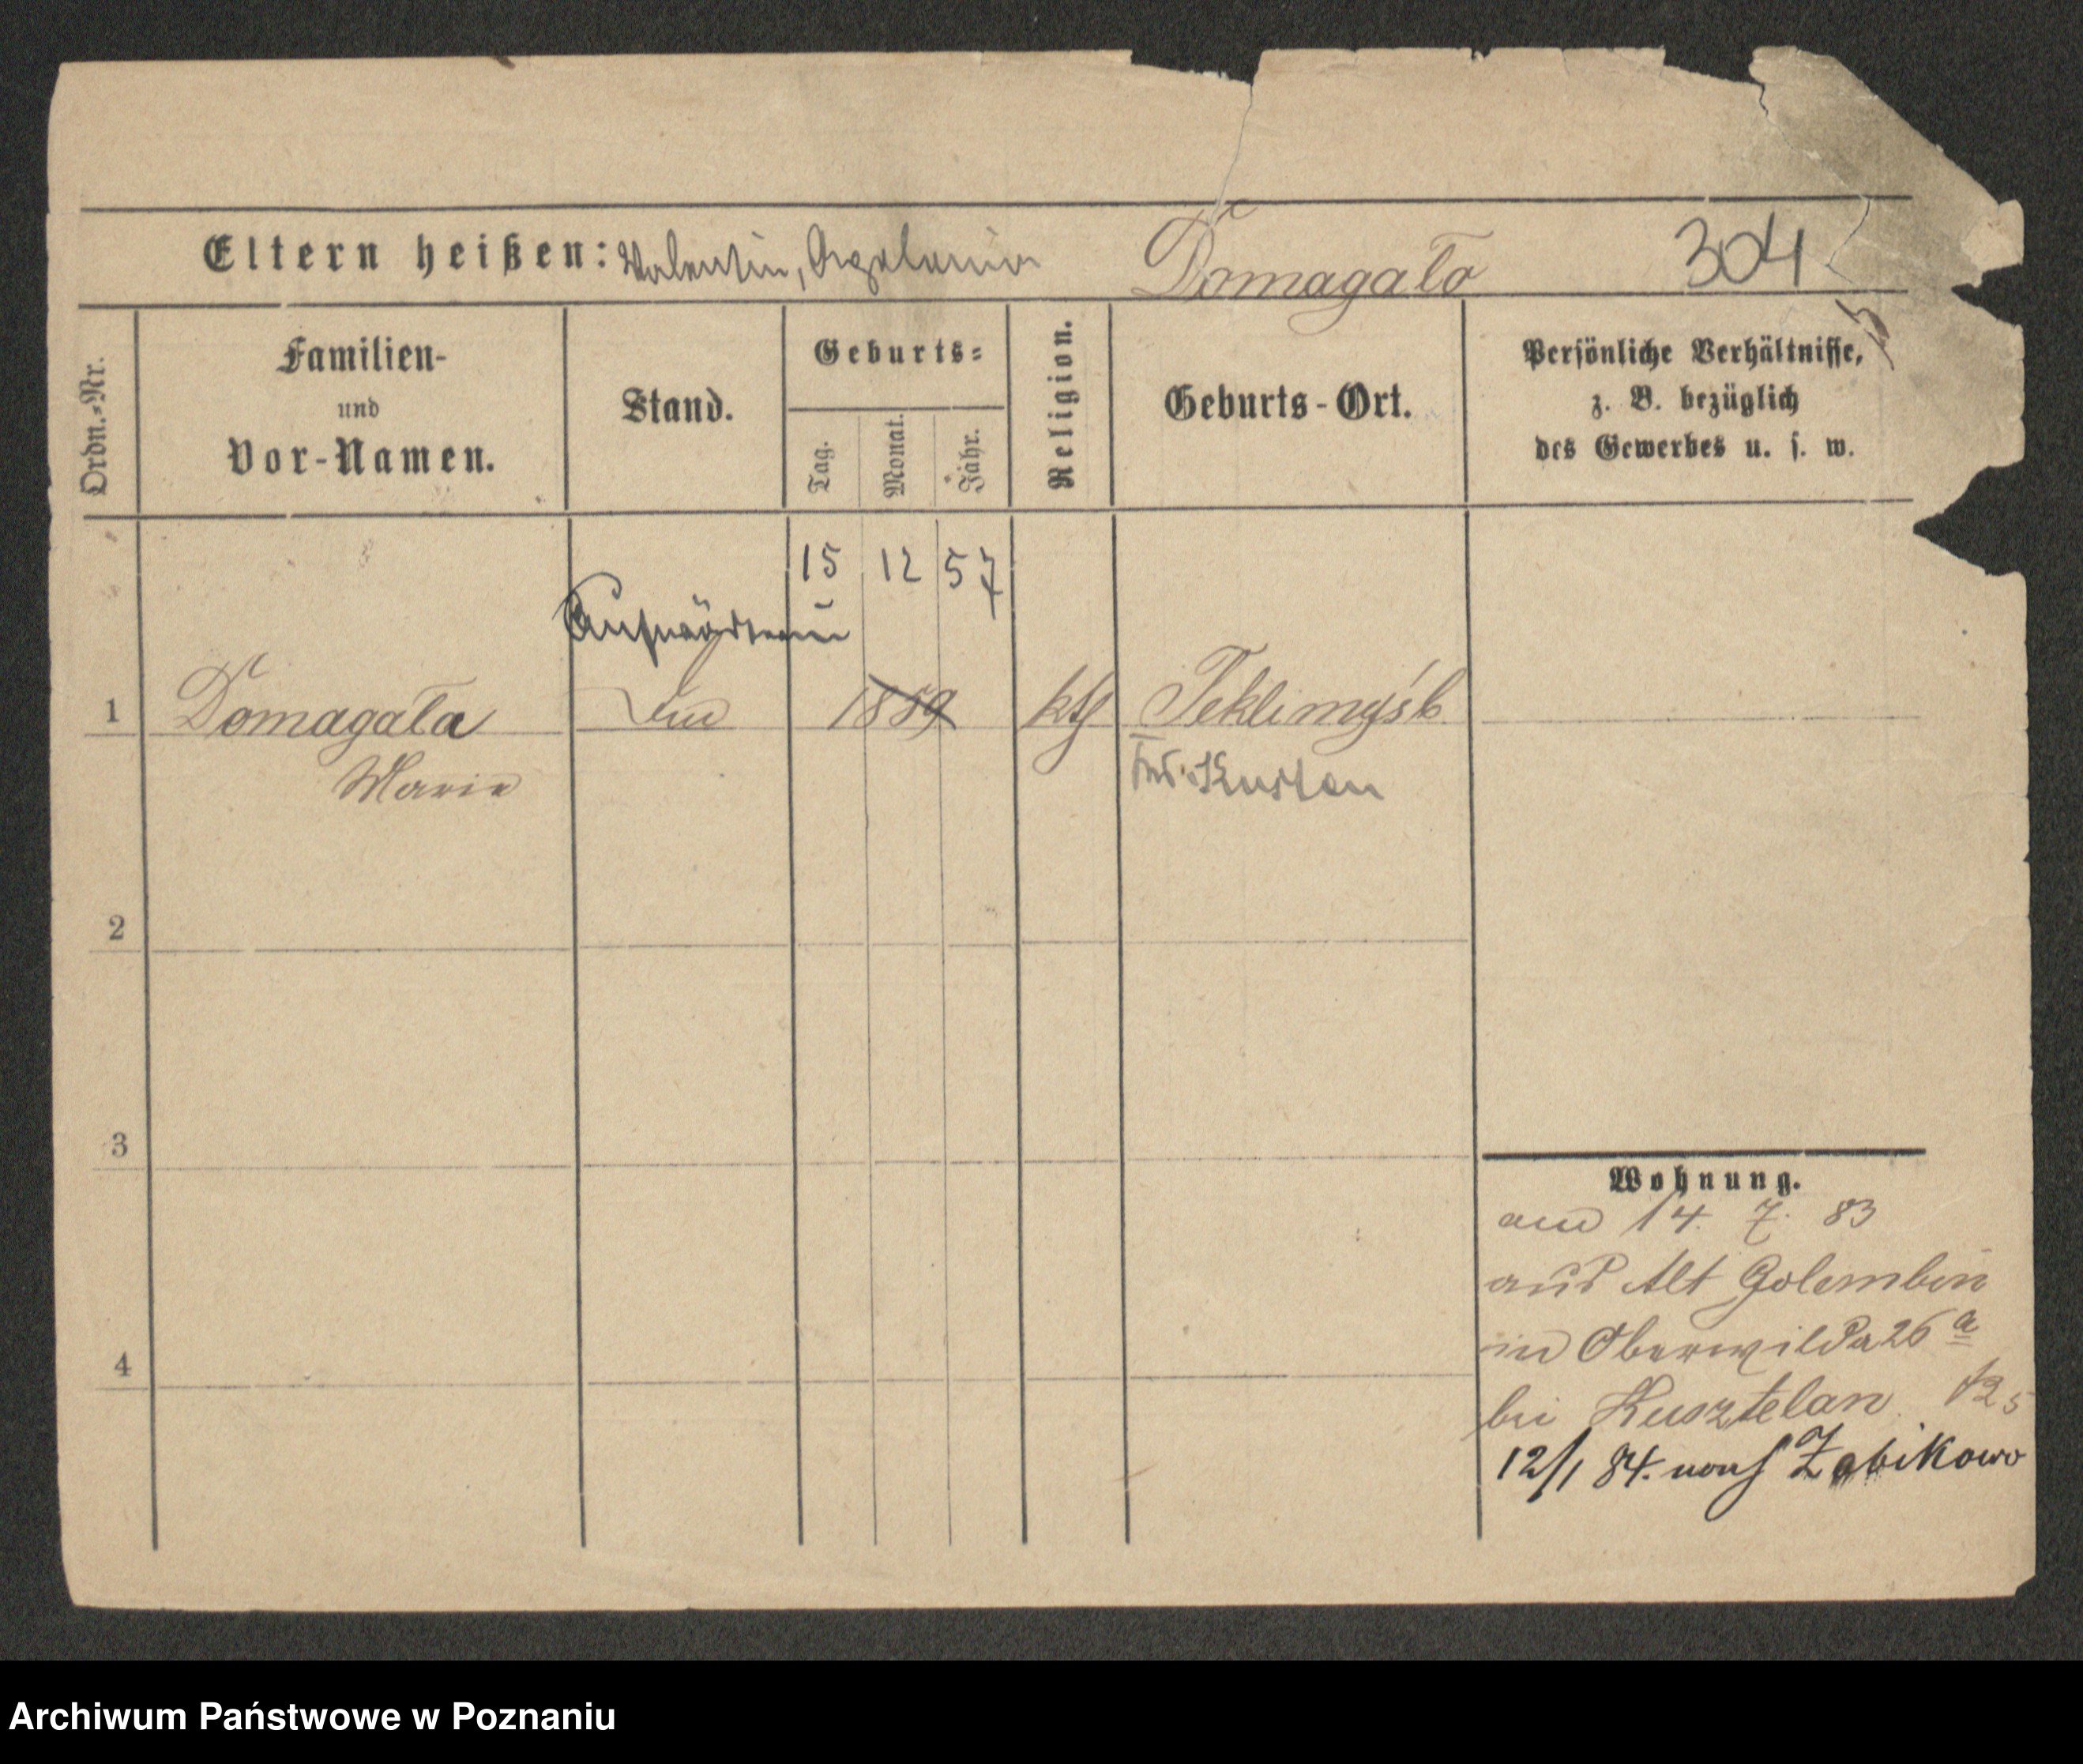 Eltern heißen: Valentin, Apolonia Domagała 304
Ordn.-Nr.
Familien-
und
Vor-Namen.
Stand.
Geburts-
Tag.
Monat.
Jahr.
Religion.
Geburts-Ort.
Persönliche Verhältnisse,
z. B. bezüglich
des Gewerbes u. s. w.
15 12 57
Aufwärterin
1 Domagała 1859 kth Teklimyśl
Marie Krs. Kosten
2
3
4
Wohnung.
am 14. 7. 83
aus Alt Golembin
in Oberwilda 26 a
bei Kusztelan
12/1 84. nach Zabikowo
Archiwum Państwowe w Poznaniu